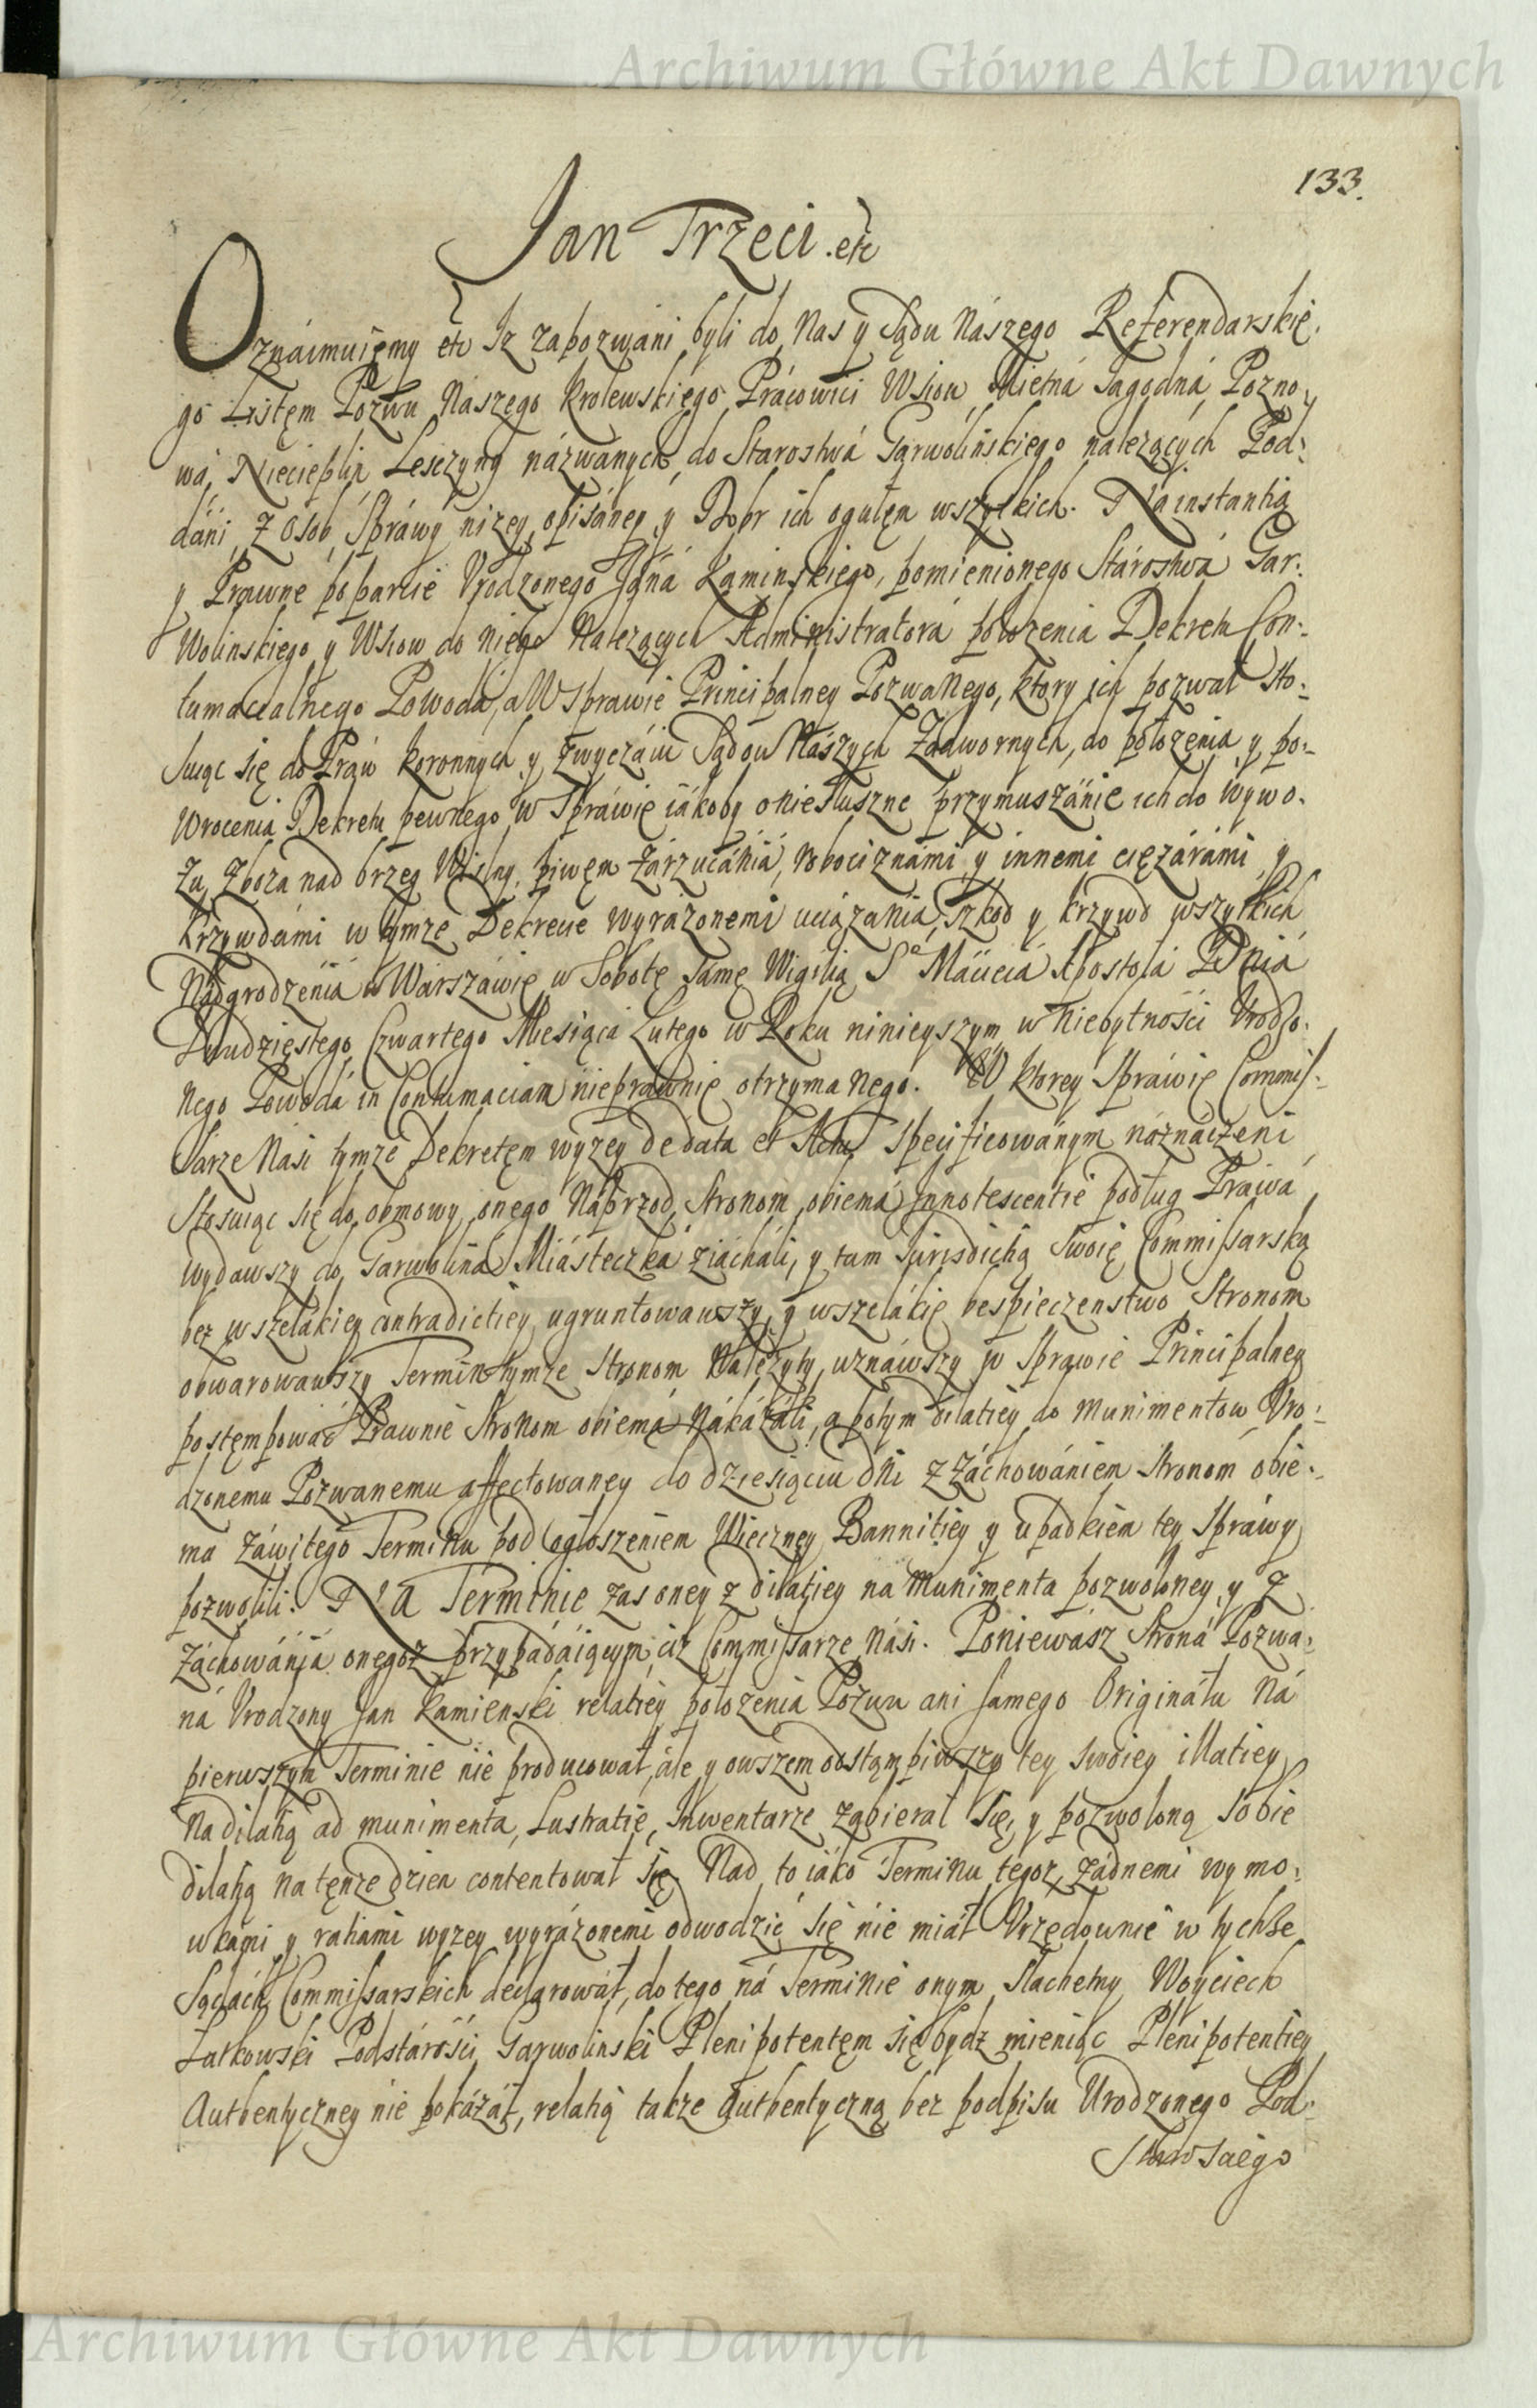 Archiwum Główne Akt Dawnych
133.
Jan Trzeci etc
Oznaimuiemy etc Jz zapozwani byli do Nas y Sądu Nászego Referendarskie.
go Listęm Pozwu Naszego Krolewskiego Prácowici Wsiow Miętná Jagodná Pozno,
wá, Niecieplin Lesczyny názwánych do Starostwá Garwolinskiego nalezących Pod:
dáni, z Osob, Spráwy nizey opisáney y Dobr ich ogułęm wszytkich. Ná instantią
y Prawne poparcie Vrodzonego Janá Kaminskiego, pomienionego Stárostwá Gar:
Wolinskiego y Wsiow do niego Nalezących Administratorá połozenia Dekretu Con:
tumacialnego Powodá, a W Sprawie Principalney PozwaNego, ktory ich pozwał sto:
suiąc się do Praw koronnych y zwyczáiu Sądow Nászych Zadwornych, do położenia y po:
Wrocenia Dekretu pewnego w Spráwie iákoby o niesłuszne przymuszánie ich do wywo.
zu, zboza nad brzeg Wisły, piwęm zárzucániá, robociznámi y innemi cięzárámi y
Krzywdámi w tymze Dekrecie wyrázonemi uciązania, szkod y krzywd wszytkich
Nadgrodzeniá w Warszáwie w Sobotę sámę Wigilią So Macieiá Apostołá Dniá
Dwudziestego Czwartego Miesiąca Lutego w Roku ninieyszym w Niebytności Vrodzo.
Nego Powodá in Contumaciam nieprawnie otrzymaNego. W ktorey Spráwie Commis:
Sarze Nasi tymze Dekretęm wyzey de data et Actu specificowánym náznaczeni
Stosuiąc się do obmowy onego Náprzod Stronom obiemá innotescentie podług Práwá
wydawszy do Garwoliná Miásteczká ziácháli, y tam Jurisdictią Swoię Commissarską
bez wszelákiey contradictiey ugruntowawszy, y wszelákie bespieczenstwo Stronom
obwarowawszy Termin tymze Stronom Należyty, uznáwszy w Sprawie Principalney
postęmpować Prawnie StroNom obiemá Nákázáli, a potym dilatiey do munimentow Vro:
dzonemu Pozwanemu affectowaney do dziesiąciu dNi z Záchowániem Stronom obie:
ma Záwitego TermiNu pod ogłoszeniem Wieczney Bannitiey y upadkiem tey Spráwy
pozwolili. NA Terminie zas oney z dilatiey na Munimenta pozwoloney, y z
Záchowániá onegoz przypádáiącym ciż Commissarze Nási. Poniewasz Stroná Pozwa:
ná Vrodzony Jan Kamienski relatiey połozenia Pozwu ani samego Originału Ná
pierwszym Terminie nie producował, ále y owszem odstąmpiwszy tey swoiey illatiey
Na dilatią ad munimenta, Lustratie, Inwentarze zabierał Się, y pozwoloną Sobie
dilatią na tęnze dzien contentował Się. Nad to iáko Terminu tegoz żádnemi wymo:
wkámi y ratiami wyzey wyrázonemi odwodzić się nie miáł Vrzędownie w tychże
Sądách Commissarskich declarował, do tego ná Terminie onym Slachetny Woyciech
Łatkowski Podstárości Garwolinski Plenipotentęm się bydz mieniąc Plenipotentiey
Authentyczney nie pokázáł, relatią takze Authentyczną bez podpisu Urodzonego Pod:
Archiwum Główne Akt Dawnych